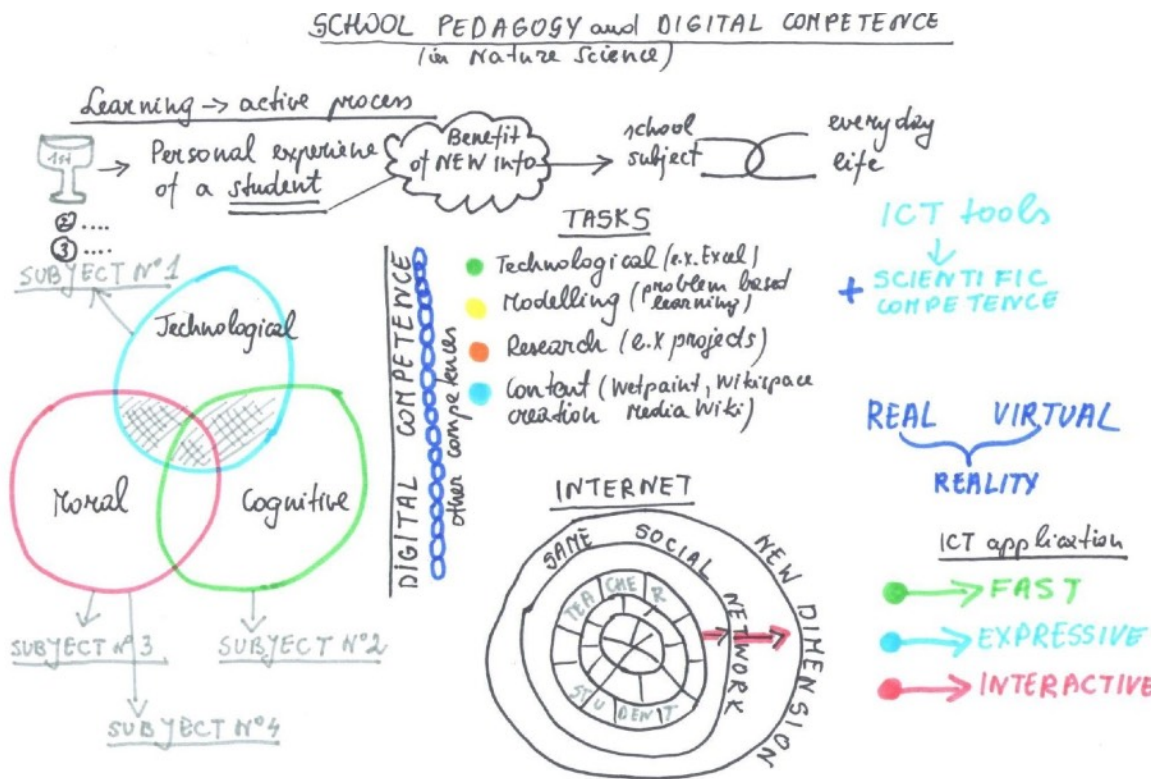 SCHOOL PEDAGOGY and DIGITAL COMPETENCE
(in Nature Science)
Learning → active process
1st → Personal experience
of a student
② ....
③ ....
Benefit
of NEW info
school
subject
everyday
life
SUBJECT Nº1
Technological
Moral
Cognitive
SUBJECT Nº3
SUBJECT Nº2
SUBJECT Nº4
DIGITAL COMPETENCE
other competences
TASKS
Technological (e.x. Excel)
Modelling (problem based
learning)
Research (e.x projects)
Content (Wetpaint, Wikispace
creation Media Wiki)
ICT tools
↓
+ SCIENTIFIC
COMPETENCE
REAL VIRTUAL
REALITY
INTERNET
SAME SOCIAL NETWORK
NEW DIMENSION
TEACHER
STUDENT
ICT application
FAST
EXPRESSIVE
INTERACTIVE